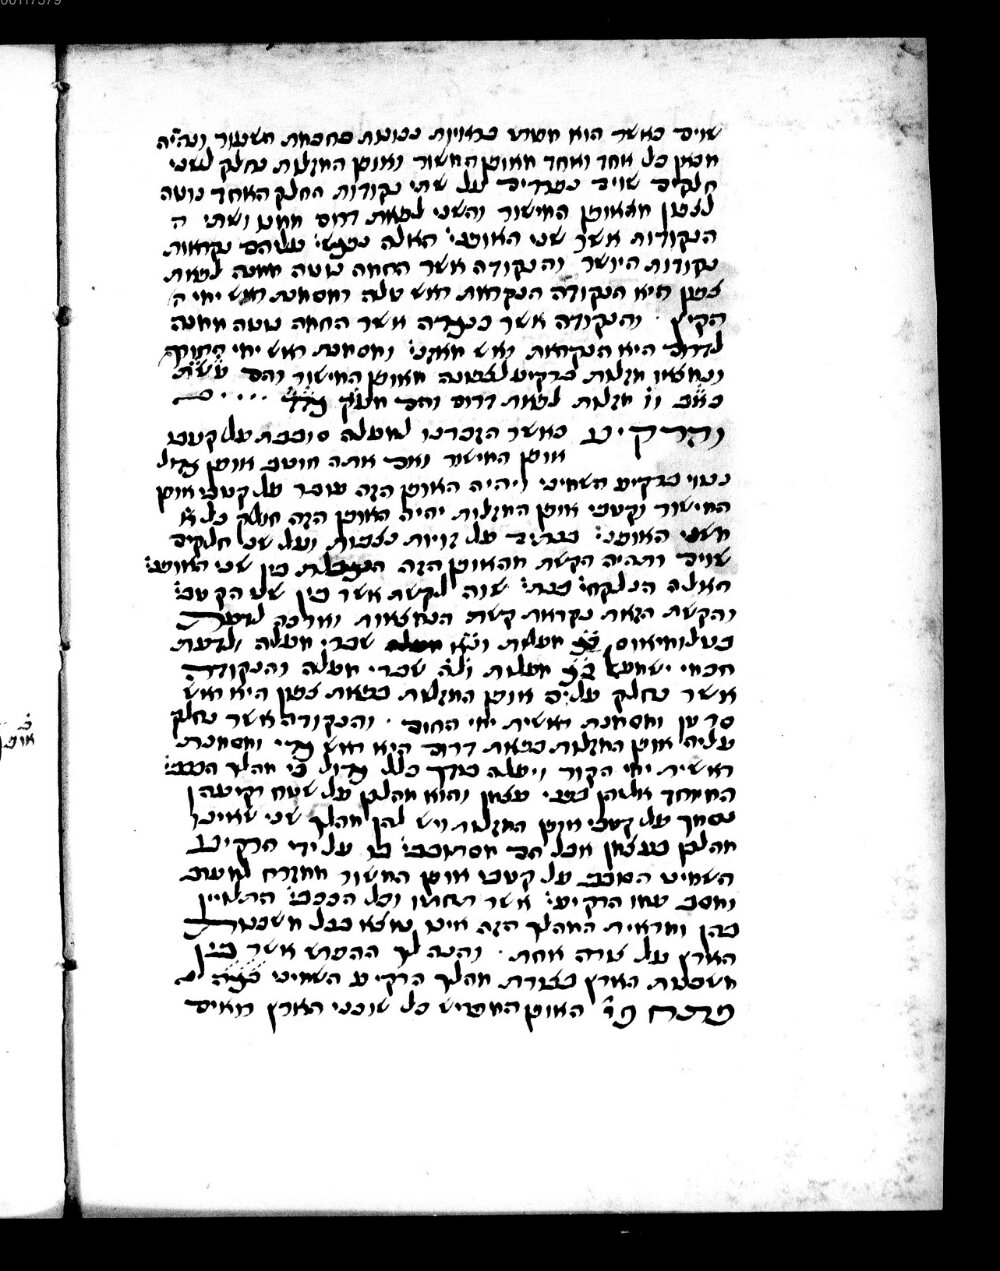 שוים כאשר הוא מפורש בראיות נכונות בחכמת השעור ונהיה
מכאן כל אחד ואחד מאופן המישור ואופן המזלות נחלק לשני
חלקים שוים נפרדים על שתי נקודות החלק האחד נוטה
לצפון מאופן המישור והשני לפאת דרום ממנו ושתי ה
הנקודות אשר שני האופני' האלה נפגשי' עליהם נקראות
נקודות היושר והנקודה אשר החמה נוטה ממנה לפאת
צפון היא הנקודה הנקראת ראש טלה ומסמנת ראש ימי ה
הקיץ . והנקודה אשר כנגדה אשר החמה נוטה ממנה
לדרום היא הנקראת ראש מאזני' ומסמנת ראש ימי החורף
ונמצאו מזלות ברקיע לצפונה מאופן המישור והם טש"ת
סא"ב וו' מזלות לפאת דרום והם מע"ק גד"ד
והרקיע כאשר הזכרנו למעלה סובבת על קטבי
אופן המישור ואם אתה חושב אופן גדול
נטוי ברקיע השמיני ויהיה האופן הזה עובר על קטבי אופן
המישור וקטבי אופן המזלות יהיה האופן הזה חולק כל א'
משני האופני' בגדר על זויות נצבות ועל שני חלקים
שוים ותהיה הקשת מהאופן הזה הנופלת בין שני האופני'
האלה הנלקחי' בפני' שוה לקשת אשר בין שני הקטבי'
והקשת הזאת נקראת קשת הנמצאות וארכה לדעת
בטלומיאוס כ"ג מעלות ונ"א שברי מעלה ולדעת
חכמי ישמעאל כ"ג מעלות ול"ה שברי מעלה והנקודה
אשר נחלק עליה אופן המזלות בפאת צפון היא ראש
סרטן ומסמנת ראשית ימי החום . והנקודה אשר נחלק
עליה אופן המזלות בפאת דרום היא ראש גדי ומסמנת
ראשית ימי הקור ויעלה בידך כלל גדול כי מהלך הככבי'
המיוחד אליהן בפני עצמן והוא מהלכן על שטח רקיעהן
נסמך על קטבי אופן המזלות ויש להן מהלך שני שאינו
מהלכן בעצמן אבל הם מסתובבי' בו על ידי הרקיע
השמיני הסובב על קטבי אופן המישור ממזרח למערב
ומסבב עמו הרקיעי' אשר תחתיו וכל הככבי' התלויין
בהן ומראית המהלך הזה אינו נמצא בכל משכנות
הארץ על שורה אחת . והנה לך ההפרש אשר בין
משכנות הארץ בצורת מהלך הרקיע השמיני
האופן המפריש כל שוכני הארץ רואים